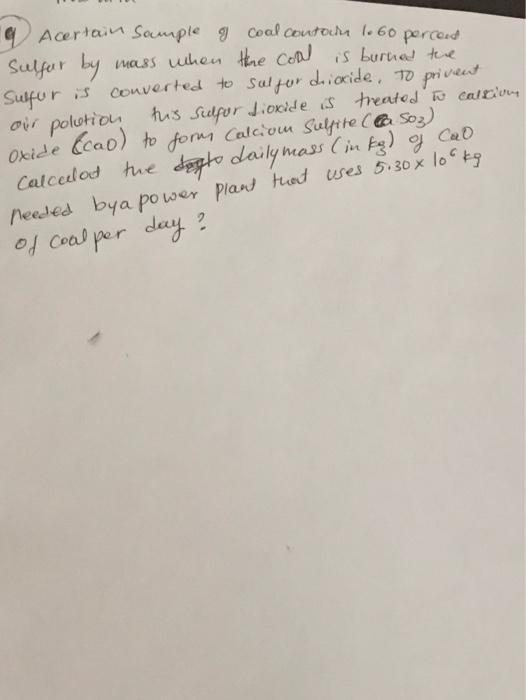 9 A certain Sample of coal contain 1.60 percent
Sulfur by mass when the coal is burned the
Sulfur is converted to sulfur dioxide. To privent
air polution this sulfur dioxide is treated to calcium
oxide (cao) to form Calcium Sulfite (Ca SO3)
Calculat the daily mass (in kg) of CaO
needed by a power plant that uses 5.30 x 10^6 kg
of coal per day ?